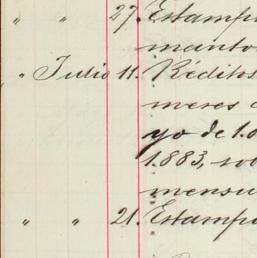 " " 27. Estamp
manto
" Julio 11. Réditos
meses
yo de 1.
1.883, so
mensu
" " 21. Estamp